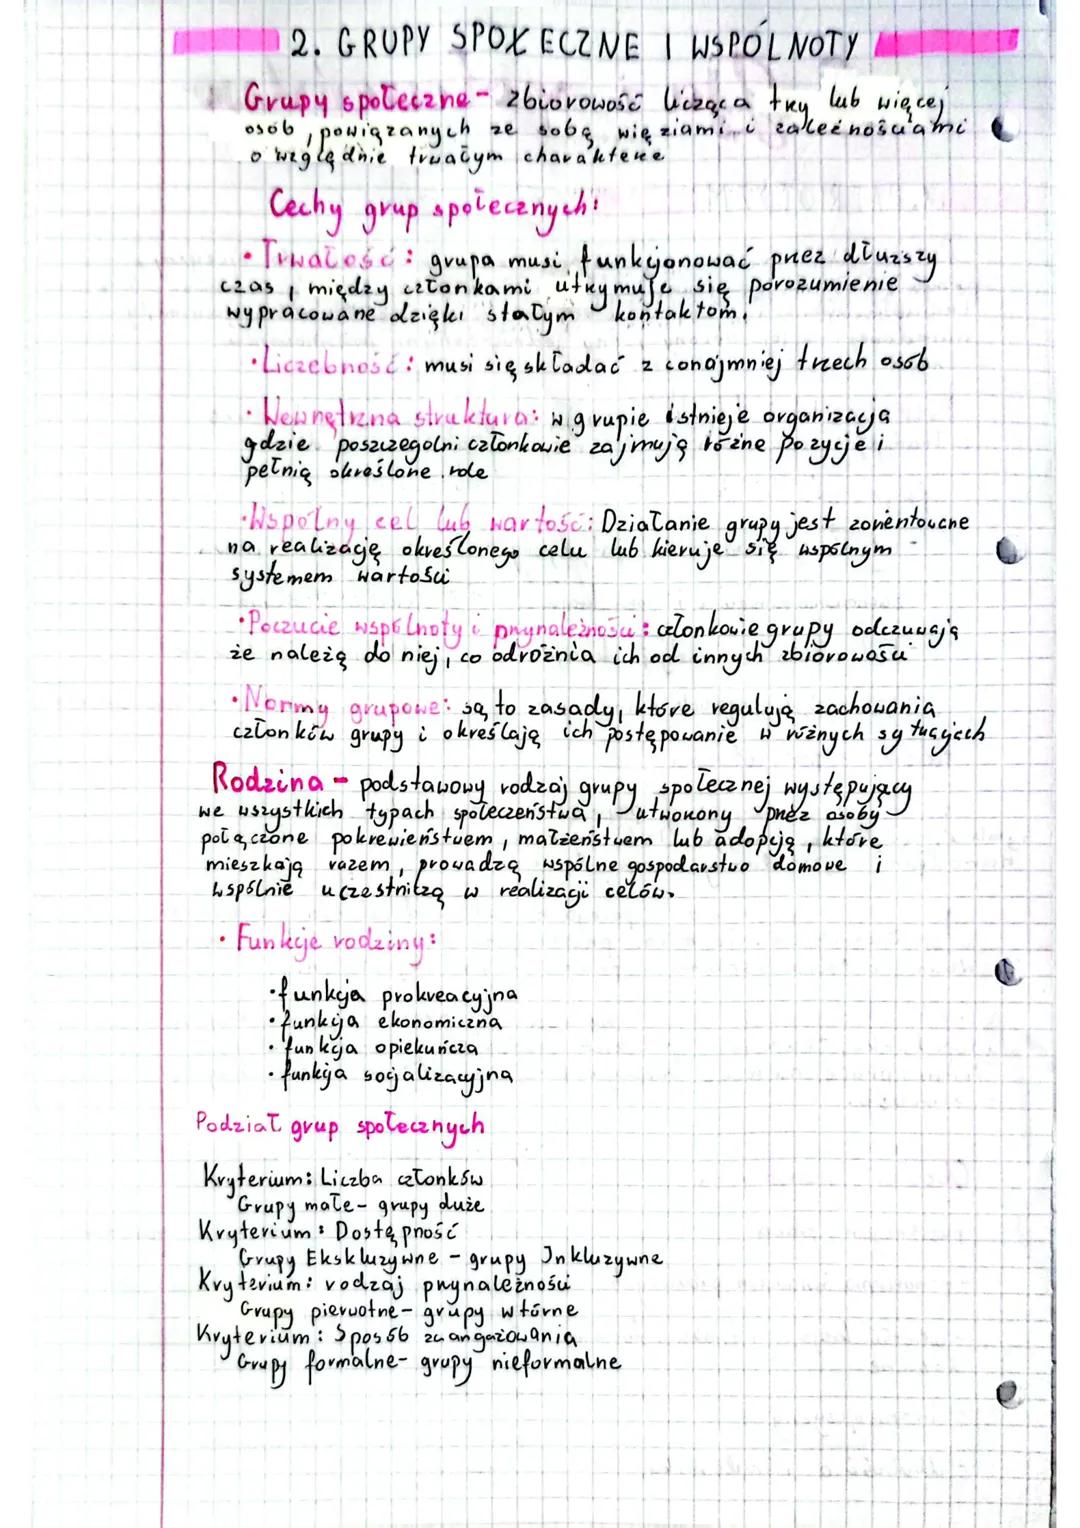 2. GRUPY SPOŁECZNE I WSPÓLNOTY
Grupy społeczne - zbiorowość licząca trzy lub więcej
osób, powiązanych ze sobą więziami i zależnościami
o względnie trwałym charakterze
Cechy grup społecznych:
• Trwałość: grupa musi funkcjonować przez dłuższy
czas, między członkami utrzymuje się porozumienie
wypracowane dzięki stałym kontaktom.
• Liczebność: musi się składać z conajmniej trzech osób
• Wewnętrzna struktura: w grupie istnieje organizacja
gdzie poszczegolni członkowie zajmują różne pozycje i
pełnią określone role
• Wspólny cel lub wartość: Działanie grupy jest zorientowane
na realizację określonego celu lub kieruje się wspólnym
systemem wartości
• Poczucie wspólnoty i przynależności: członkowie grupy odczuwają
że należą do niej, co odróżnia ich od innych zbiorowości
• Normy grupowe: są to zasady, które regulują zachowania
członków grupy i określają ich postępowanie w różnych sytuacjach
Rodzina - podstawowy rodzaj grupy społecznej występujący
we wszystkich typach społeczeństwa, utworzony przez osoby
połączone pokrewieństwem, małżeństwem lub adopcją, które
mieszkają razem, prowadzą wspólne gospodarstwo domowe i
wspólnie uczestniczą w realizacji celów.
• Funkcje rodziny:
• funkcja prokreacyjna
• funkcja ekonomiczna
• funkcja opiekuńcza
• funkcja socjalizacyjna
Podział grup społecznych
Kryterium: Liczba członków
Grupy małe - grupy duże
Kryterium: Dostępność
Grupy Ekskluzywne - grupy Inkluzywne
Kryterium: rodzaj przynależności
Grupy pierwotne - grupy wtórne
Kryterium: Sposób zaangażowania
Grupy formalne - grupy nieformalne